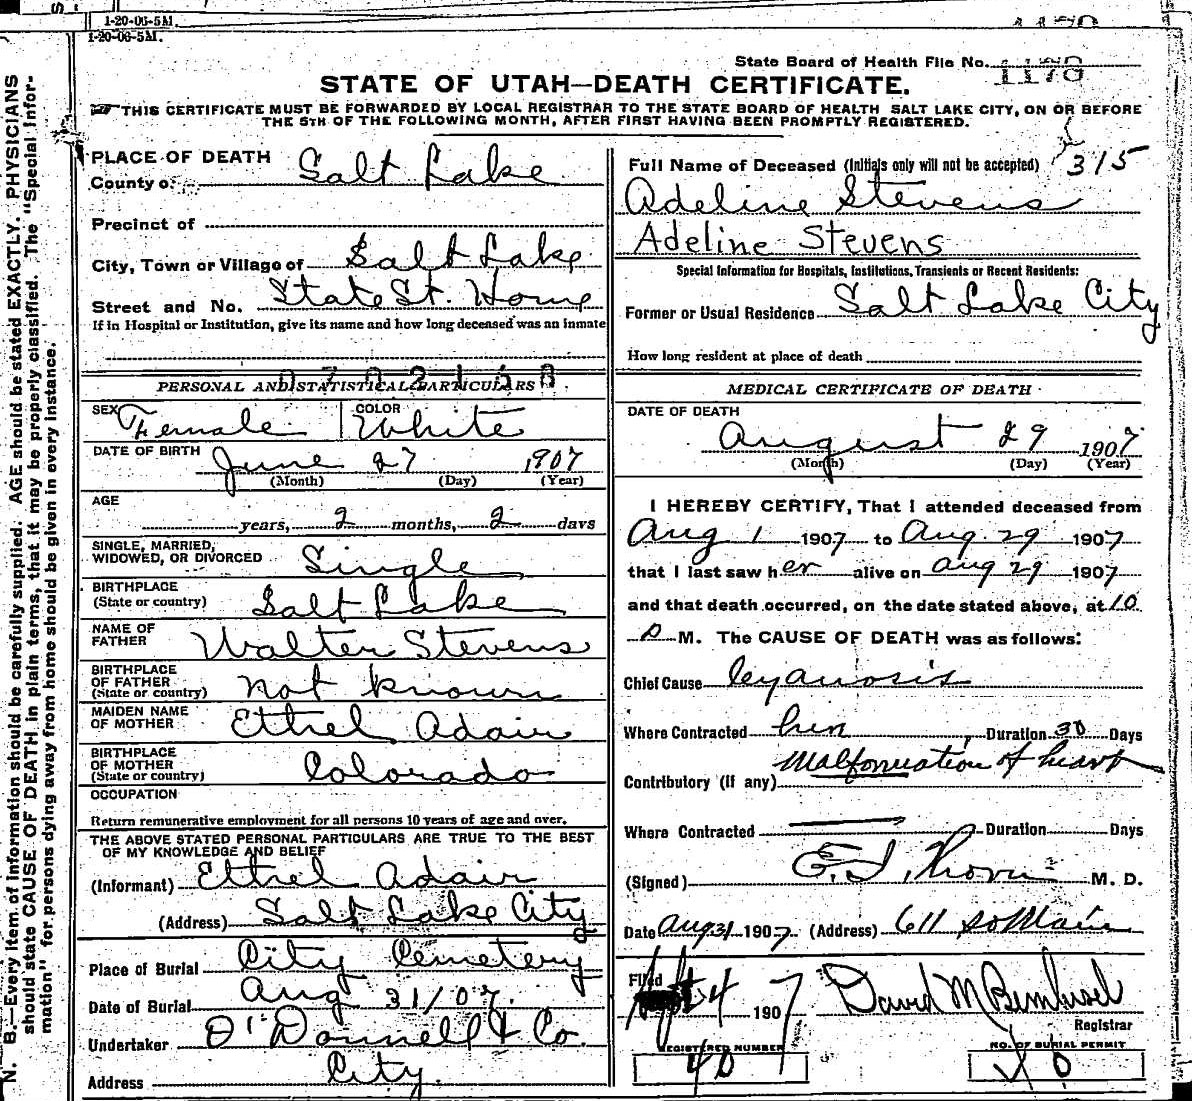 1-20-06-5M.
1-20-06-5M.
State Board of Health File No. 1178
STATE OF UTAH—DEATH CERTIFICATE.
THIS CERTIFICATE MUST BE FORWARDED BY LOCAL REGISTRAR TO THE STATE BOARD OF HEALTH SALT LAKE CITY, ON OR BEFORE
THE 5TH OF THE FOLLOWING MONTH, AFTER FIRST HAVING BEEN PROMPTLY REGISTERED.
N. B.—Every item of information should be carefully supplied. AGE should be stated EXACTLY. PHYSICIANS
should state CAUSE OF DEATH in plain terms, that it may be properly classified. The "Special Infor-
mation" for persons dying away from home should be given in every instance.
PLACE OF DEATH
County o. Salt Lake
Precinct of
City, Town or Village of Salt Lake
Street and No. State St. Home
If in Hospital or Institution, give its name and how long deceased was an inmate
PERSONAL AND STATISTICAL PARTICULARS
SEX Female COLOR White
DATE OF BIRTH June 27 1907
(Month) (Day) (Year)
AGE
years, 2 months, 2 days
SINGLE, MARRIED,
WIDOWED, OR DIVORCED Single
BIRTHPLACE
(State or country) Salt Lake
NAME OF
FATHER Walter Stevens
BIRTHPLACE
OF FATHER
(State or country) not known
MAIDEN NAME
OF MOTHER Ethel Adair
BIRTHPLACE
OF MOTHER
(State or country) Colorado
OCCUPATION
Return remunerative employment for all persons 10 years of age and over.
THE ABOVE STATED PERSONAL PARTICULARS ARE TRUE TO THE BEST
OF MY KNOWLEDGE AND BELIEF
(Informant) Ethel Adair
(Address) Salt Lake City
Place of Burial City Cemetery
Date of Burial Aug 31/07.
Undertaker O'Donnell & Co.
Address City.
Full Name of Deceased (Initials only will not be accepted) 315
Adeline Stevens
Adeline Stevens
Special Information for Hospitals, Institutions, Transients or Recent Residents:
Former or Usual Residence Salt Lake City
How long resident at place of death
MEDICAL CERTIFICATE OF DEATH
DATE OF DEATH
August 29 1907
(Month) (Day) (Year)
I HEREBY CERTIFY, That I attended deceased from
Aug 1 1907 to Aug. 29 1907
that I last saw her alive on Aug 29 1907
and that death occurred, on the date stated above, at 10
P M. The CAUSE OF DEATH was as follows:
Chief Cause Cyanosis
Where Contracted Duration 30 Days
Contributory (if any) Malformation of heart
Where Contracted Duration Days
(Signed) M. D.
Date Aug 31 1907 (Address) 611 So Main
Filed 4 1907 David M
Registrar
REGISTERED NUMBER
40
NO. OF BURIAL PERMIT